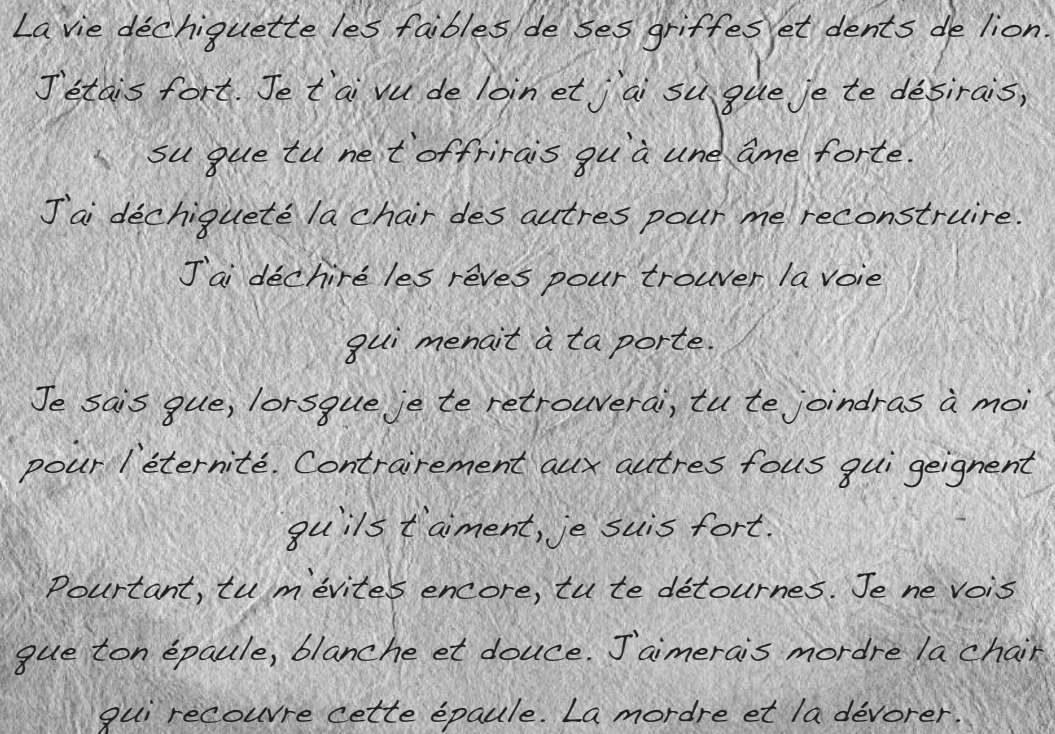 La vie déchiquette les faibles de ses griffes et dents de lion.
J'étais fort. Je t'ai vu de loin et j'ai su que je te désirais,
su que tu ne t'offrirais qu'à une âme forte.
J'ai déchiqueté la chair des autres pour me reconstruire.
J'ai déchiré les rêves pour trouver la voie
qui menait à ta porte.
Je sais que, lorsque je te retrouverai, tu te joindras à moi
pour l'éternité. Contrairement aux autres fous qui geignent
qu'ils t'aiment, je suis fort.
Pourtant, tu m'évites encore, tu te détournes. Je ne vois
que ton épaule, blanche et douce. J'aimerais mordre la chair
qui recouvre cette épaule. La mordre et la dévorer.